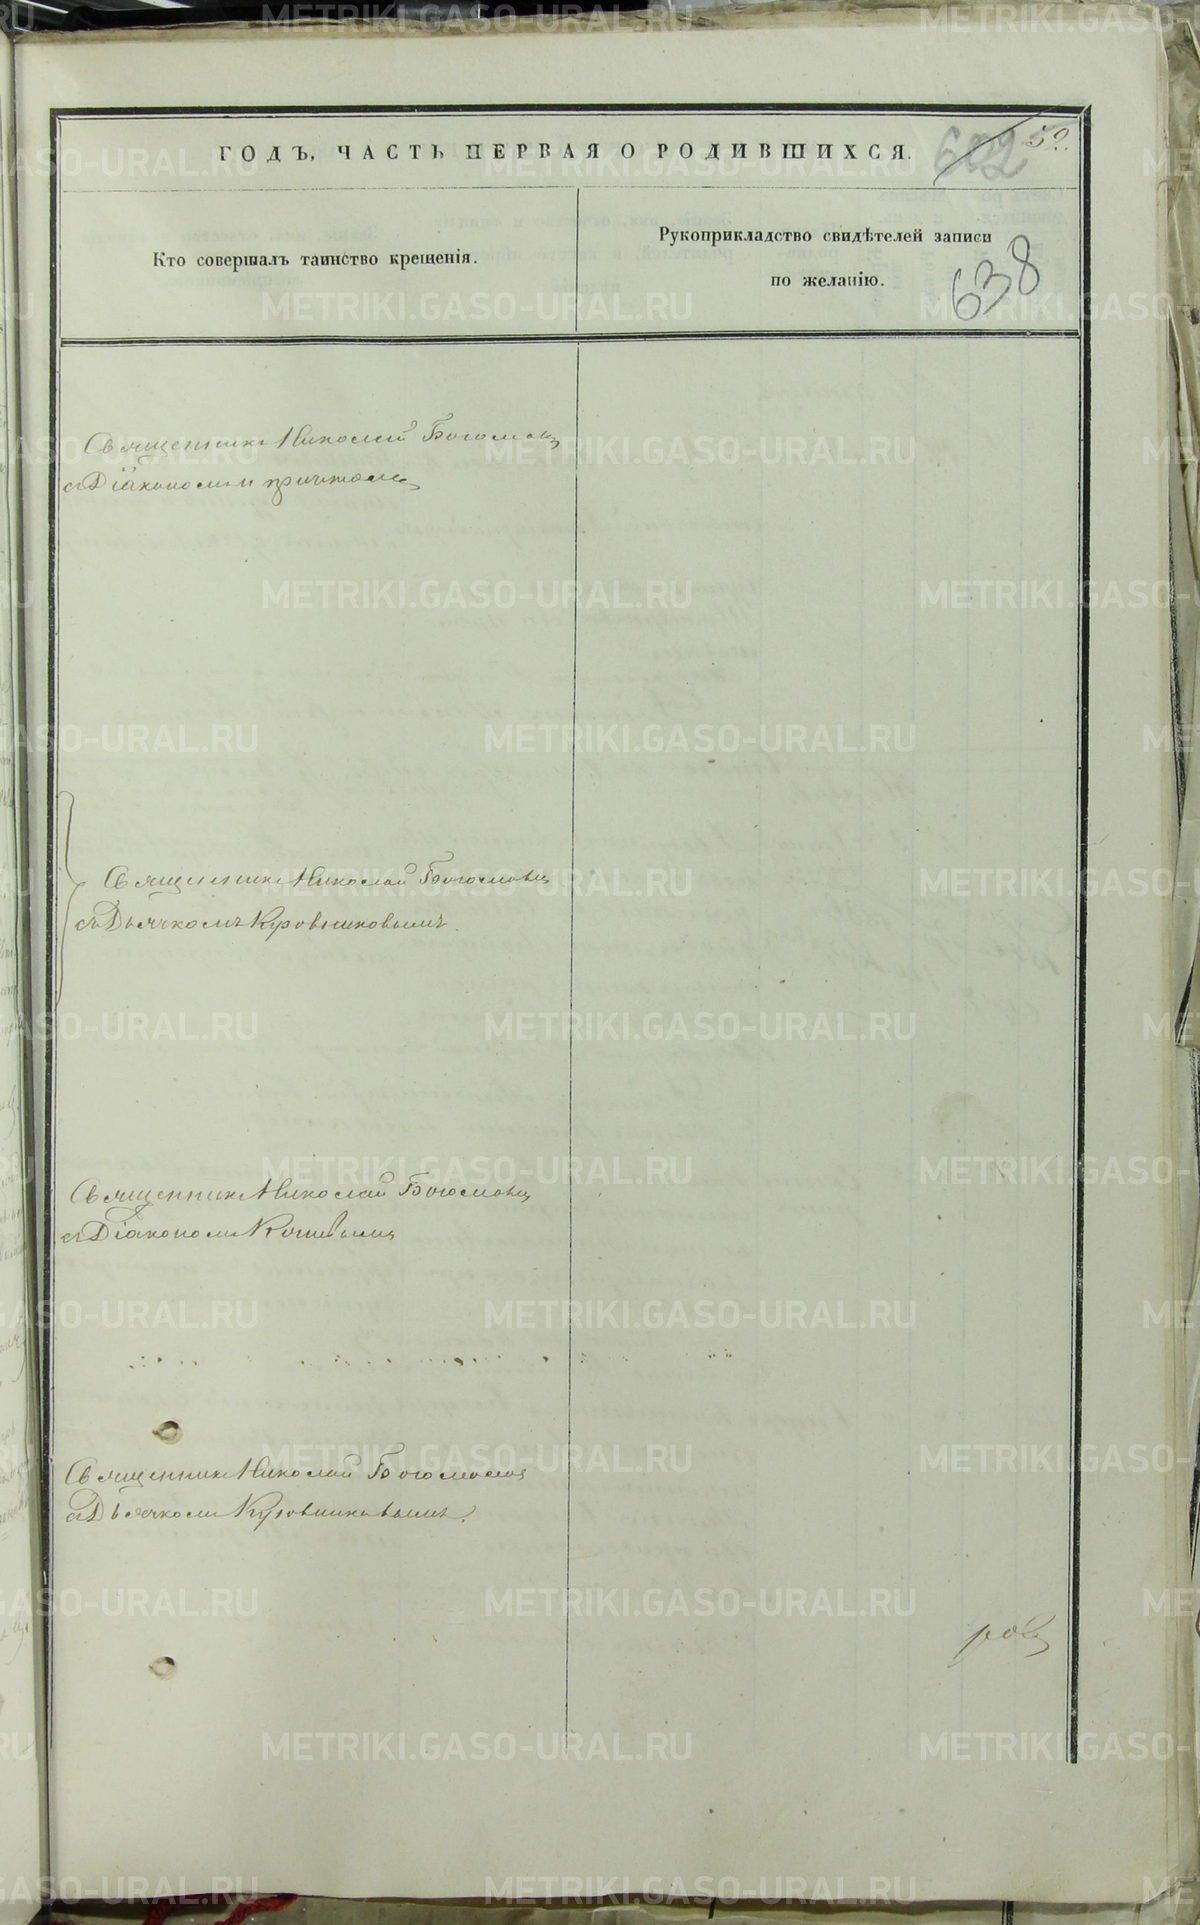 ГОДЪ, ЧАСТЬ ПЕРВАЯ О РОДИВШИХСЯ.
602 59.
Кто совершалъ таинство крещенія.
Рукоприкладство свидѣтелей записи
по желанію.
638
Священникъ Николай Богомоловъ
съ Діакономъ и причтомъ
Священникъ Николай Богомоловъ
съ Дьячкомъ Кировниковымъ.
Священникъ Николай Богомоловъ
съ Діакономъ
Священникъ Николай Богомоловъ
съ Дьячкомъ Кировниковымъ.
METRIKI.GASO-URAL.RU